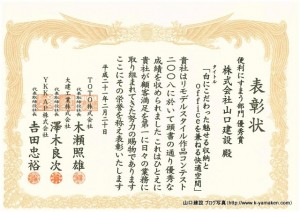 表彰状
便利にすまう部門 優秀賞
株式会社山口建設 殿
タイトル
「白にこだわった魅せる収納と
Officeを兼ねる快適空間」
貴社はリモデルスタイル作品コンテスト
二〇〇八に於いて頭書の通り優秀な
成績を収められました これはひとえに
貴社が顧客満足を第一に日々の業務に
取り組まれてきた努力の賜物であります
ここにその栄誉を称え表彰いたします
平成二十一年二月二十日
TOTO株式会社
木瀬照雄
大建工業株式会社
澤木良次
YKK AP株式会社
吉田忠裕
山口建設ブログ写真(http://www.k-yamaken.com)